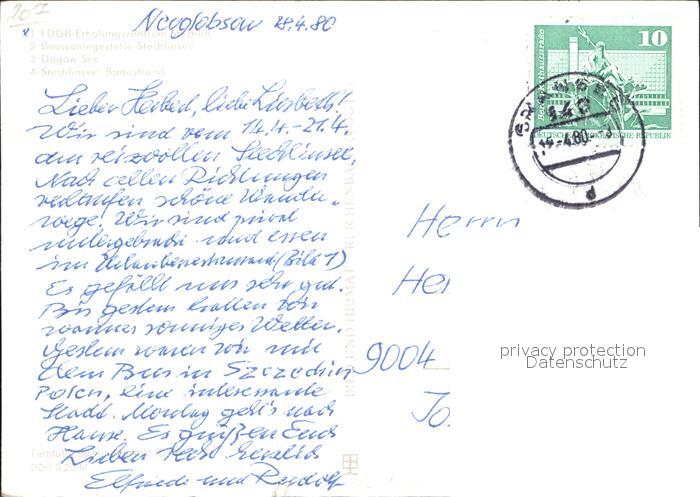 207
Neuglobsow 18.4.80
1 FDGB-Erholungszentrum
2 Bootsanlegestelle Stechlinsee
3 Dagow-See
4 Stechlinsee, Badestrand
Lieber Herbert, liebe Lisbeth!
Wir sind vom 14.4.-21.4.
am reizvollen Stechlinsee,
Nach allen Richtungen
verlaufen schöne Wander-
wege. Wir sind privat
untergebracht und essen
im Urlauberrestaurant (Bild 1)
Es gefällt uns sehr gut.
Bis gestern hatten wir
warmes sonniges Wetter.
Gestern waren wir mit
dem Bus in Szczecin
Polen, eine interessante
Stadt. Montag geht's nach
Hause. Es grüßen Euch
Lieben recht herzlich
Elfriede und Rudolf
DDR 0,20 M
BILD UND HEIMAT REICHENBACH
10
DEUTSCHE DEMOKRATISCHE REPUBLIK
GRANSEE
143
19.-4.80
d
Herrn
He
9004
Jo
privacy protection
Datenschutz